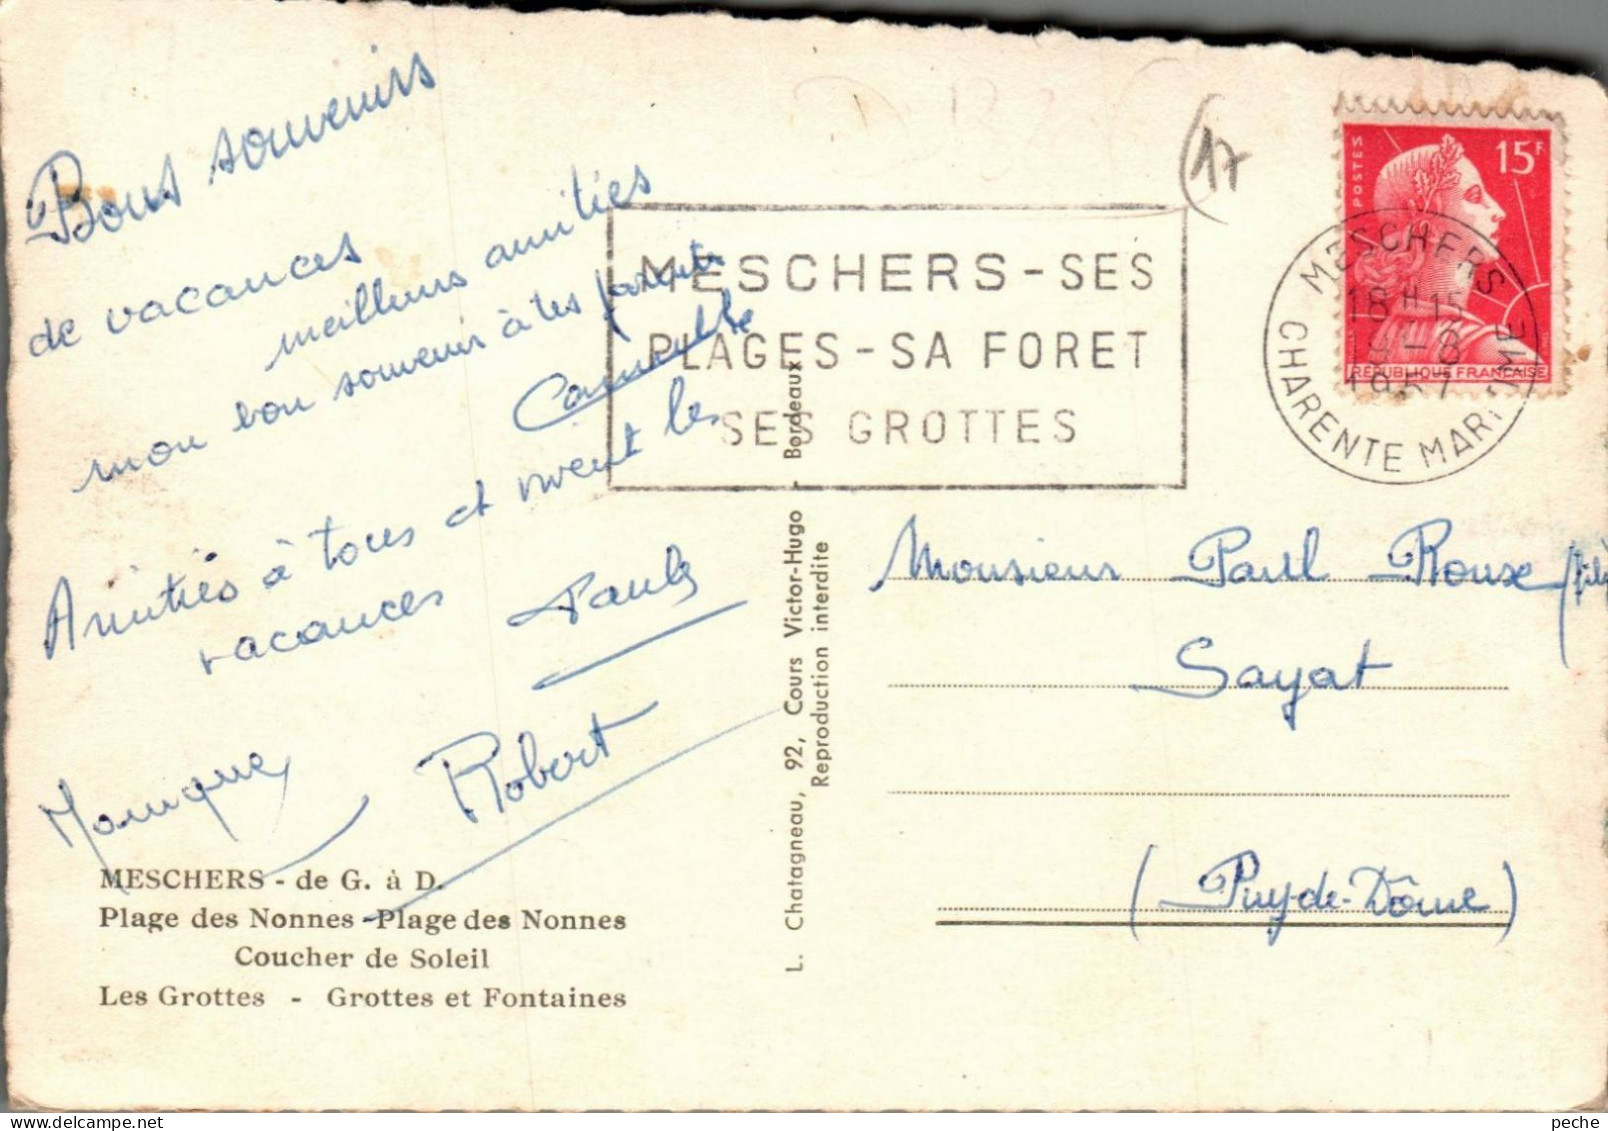 Bons souvenirs
de vacances
meilleurs amitiés
mon bon souvenir à tes parents
Camille
Amitiés à tous et vivent les
vacances
Paule
Monique
Robert
MESCHERS - de G. à D.
Plage des Nonnes - Plage des Nonnes
Coucher de Soleil
Les Grottes - Grottes et Fontaines
L. Chatagneau, 92, Cours Victor-Hugo - Bordeaux
Reproduction interdite
MESCHERS - SES
PLAGES - SA FORET
SES GROTTES
(17
POSTES
15F
REPUBLIQUE FRANÇAISE
MESCHERS
18 H 15
-8
1957
CHARENTE MARITIME
Monsieur Paul Roux (fils)
Sayat
(Puy-de-Dôme)
peche